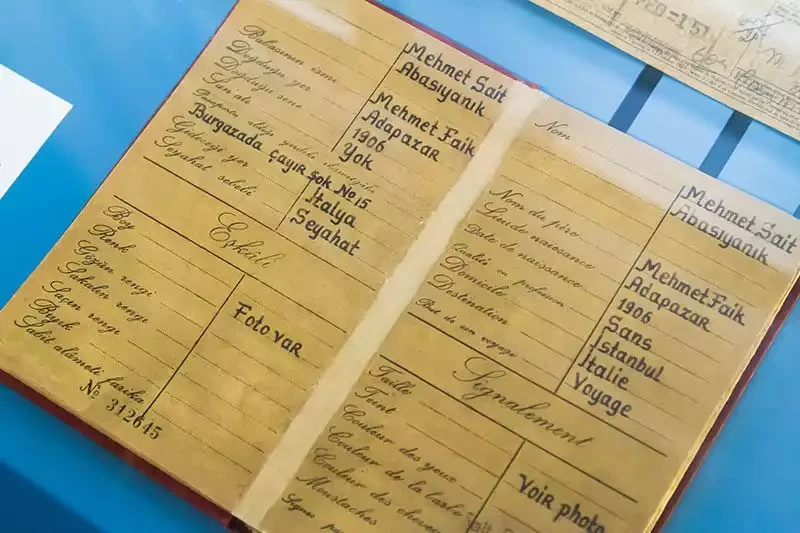 Mehmet Sait
Abasıyanık
Babasının ismi Mehmet Faik
Doğduğu yer Adapazar
Doğduğu sene 1906
San'atı Yok
Burgazada Çayır Sok No 15
Gideceği yer İtalya
Seyahat sebebi Seyahat
Eşkâli
Boy
Renk
Gözün rengi
Sakalın rengi
Saçın rengi
Bıyık
Sabit alâmeti farika
Foto var
№ 312645
Nom Mehmet Sait
Abasıyanık
Nom du père Mehmet Faik
Lieu de naissance Adapazar
Date de naissance 1906
Qualité ou profession Sans
Domicile İstanbul
Destination İtalie
But de son voyage Voyage
Signalement
Taille
Teint
Couleur des yeux
Couleur de la barbe
Couleur des cheveux
Moustaches
Signes
Voir photo
FEB -1 51